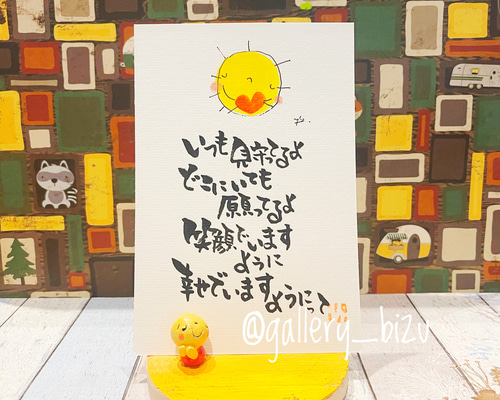 いつも見守ってるよ
どこにいても
願ってるよ
笑顔でいます
ように
幸せでいます
ようにって
@gallery_bizu